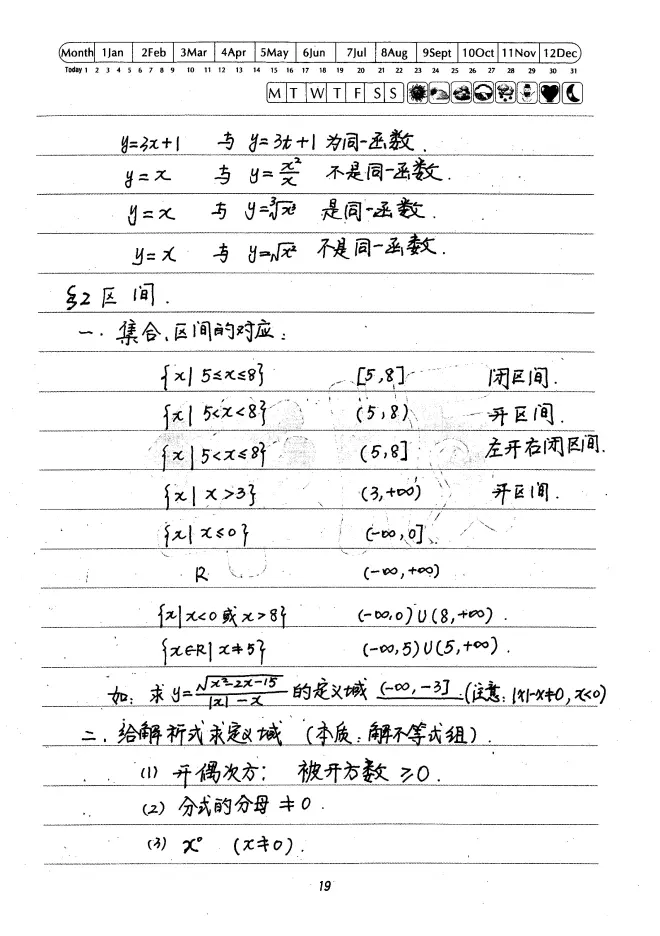 Month 1Jan 2Feb 3Mar 4Apr 5May 6Jun 7Jul 8Aug 9Sept 10Oct 11Nov 12Dec
Today 1 2 3 4 5 6 7 8 9 10 11 12 13 14 15 16 17 18 19 20 21 22 23 24 25 26 27 28 29 30 31
M T W T F S S
y=3x+1 与 y=3t+1 为同一函数.
y=x 与 y=x²/x 不是同一函数.
y=x 与 y=∛x³ 是同一函数.
y=x 与 y=√x² 不是同一函数.
§2 区间.
一. 集合、区间的对应:
{x| 5≤x≤8} [5,8] 闭区间.
{x| 5<x<8} (5,8) 开区间.
{x| 5<x≤8} (5,8] 左开右闭区间.
{x| x>3} (3,+∞) 开区间.
{x| x≤0} (-∞,0].
R (-∞,+∞)
{x|x<0或x>8} (-∞,0)∪(8,+∞).
{x∈R|x≠5} (-∞,5)∪(5,+∞).
如: 求y=√(x²-2x-15)/(|x|-x) 的定义域 (-∞,-3].(注意: |x|-x≠0, x<0)
二. 给解析式求定义域 (本质: 解不等式组).
(1) 开偶次方; 被开方数≥0.
(2) 分式的分母≠0.
(3) x⁰ (x≠0).
19